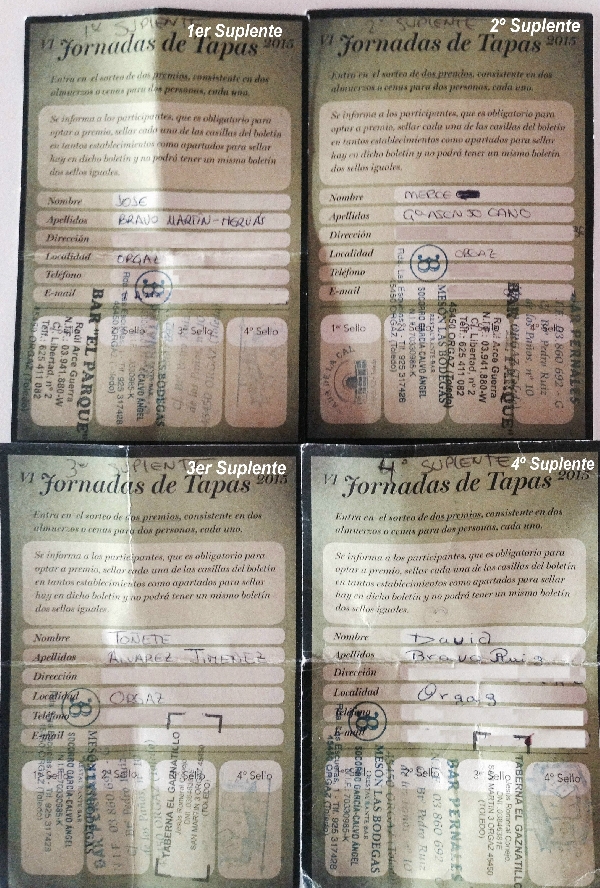 1er Suplente
1er SUPLENTE
VI Jornadas de Tapas 2015
Entra en el sorteo de dos premios, consistente en dos
almuerzos o cenas para dos personas, cada uno.
Se informa a los participantes, que es obligatorio para
optar a premio, sellar cada una de las casillas del boletín
en tantos establecimientos como apartados para sellar
hay en dicho boletín y no podrá tener un mismo boletín
dos sellos iguales.
Nombre JOSE
Apellidos BRAVO MARTIN-
Dirección
Localidad ORGAZ
Teléfono
E-mail
Sello 3º Sello 4º Sello
BAR "EL PARQUE"
Raúl Arce Guerra
N.I.F.: 03.941.880-W
C/. Libertad, nº 2
Telf.: 625 411 082
45450 ORGAZ (Toledo)
MESON LAS BODEGAS
SOCORRO GARCIA-CALVO ÁNGEL
2º Suplente
2º SUPLENTE
VI Jornadas de Tapas 2015
Entra en el sorteo de dos premios, consistente en dos
almuerzos o cenas para dos personas, cada uno.
Se informa a los participantes, que es obligatorio para
optar a premio, sellar cada una de las casillas del boletín
en tantos establecimientos como apartados para sellar
hay en dicho boletín y no podrá tener un mismo boletín
dos sellos iguales.
Nombre MERCE
Apellidos ALONSO CANO
Dirección
Localidad ORGAZ
Teléfono
E-mail
1º Sello
MESON LAS BODEGAS
SOCORRO GARCIA-CALVO ÁNGEL
Raúl Arce Guerra
N.I.F.: 03.941.880-W
C/. Libertad, nº 2
Telf.: 625 411 082
45450 ORGAZ (Toledo)
BAR PERNALES
3er Suplente
3er SUPLENTE
VI Jornadas de Tapas 2015
Entra en el sorteo de dos premios, consistente en dos
almuerzos o cenas para dos personas, cada uno.
Se informa a los participantes, que es obligatorio para
optar a premio, sellar cada una de las casillas del boletín
en tantos establecimientos como apartados para sellar
hay en dicho boletín y no podrá tener un mismo boletín
dos sellos iguales.
Nombre TOÑETE
Apellidos ALVAREZ JIMENEZ
Dirección
Localidad ORGAZ
Teléfono
E-mail
2º Sello 4º Sello
SOCORRO GARCIA-CALVO ÁNGEL
TABERNA EL GAZNATILLO
4º Suplente
4º SUPLENTE
VI Jornadas de Tapas 2015
Entra en el sorteo de dos premios, consistente en dos
almuerzos o cenas para dos personas, cada uno.
Se informa a los participantes, que es obligatorio para
optar a premio, sellar cada una de las casillas del boletín
en tantos establecimientos como apartados para sellar
hay en dicho boletín y no podrá tener un mismo boletín
dos sellos iguales.
Nombre David
Apellidos Bravo Ruiz
Dirección
Localidad Orgaz
Teléfono
E-mail
4º Sello
MESON LAS BODEGAS
SOCORRO GARCIA-CALVO ÁNGEL
BAR PERNALES
TABERNA EL GAZNATILLO